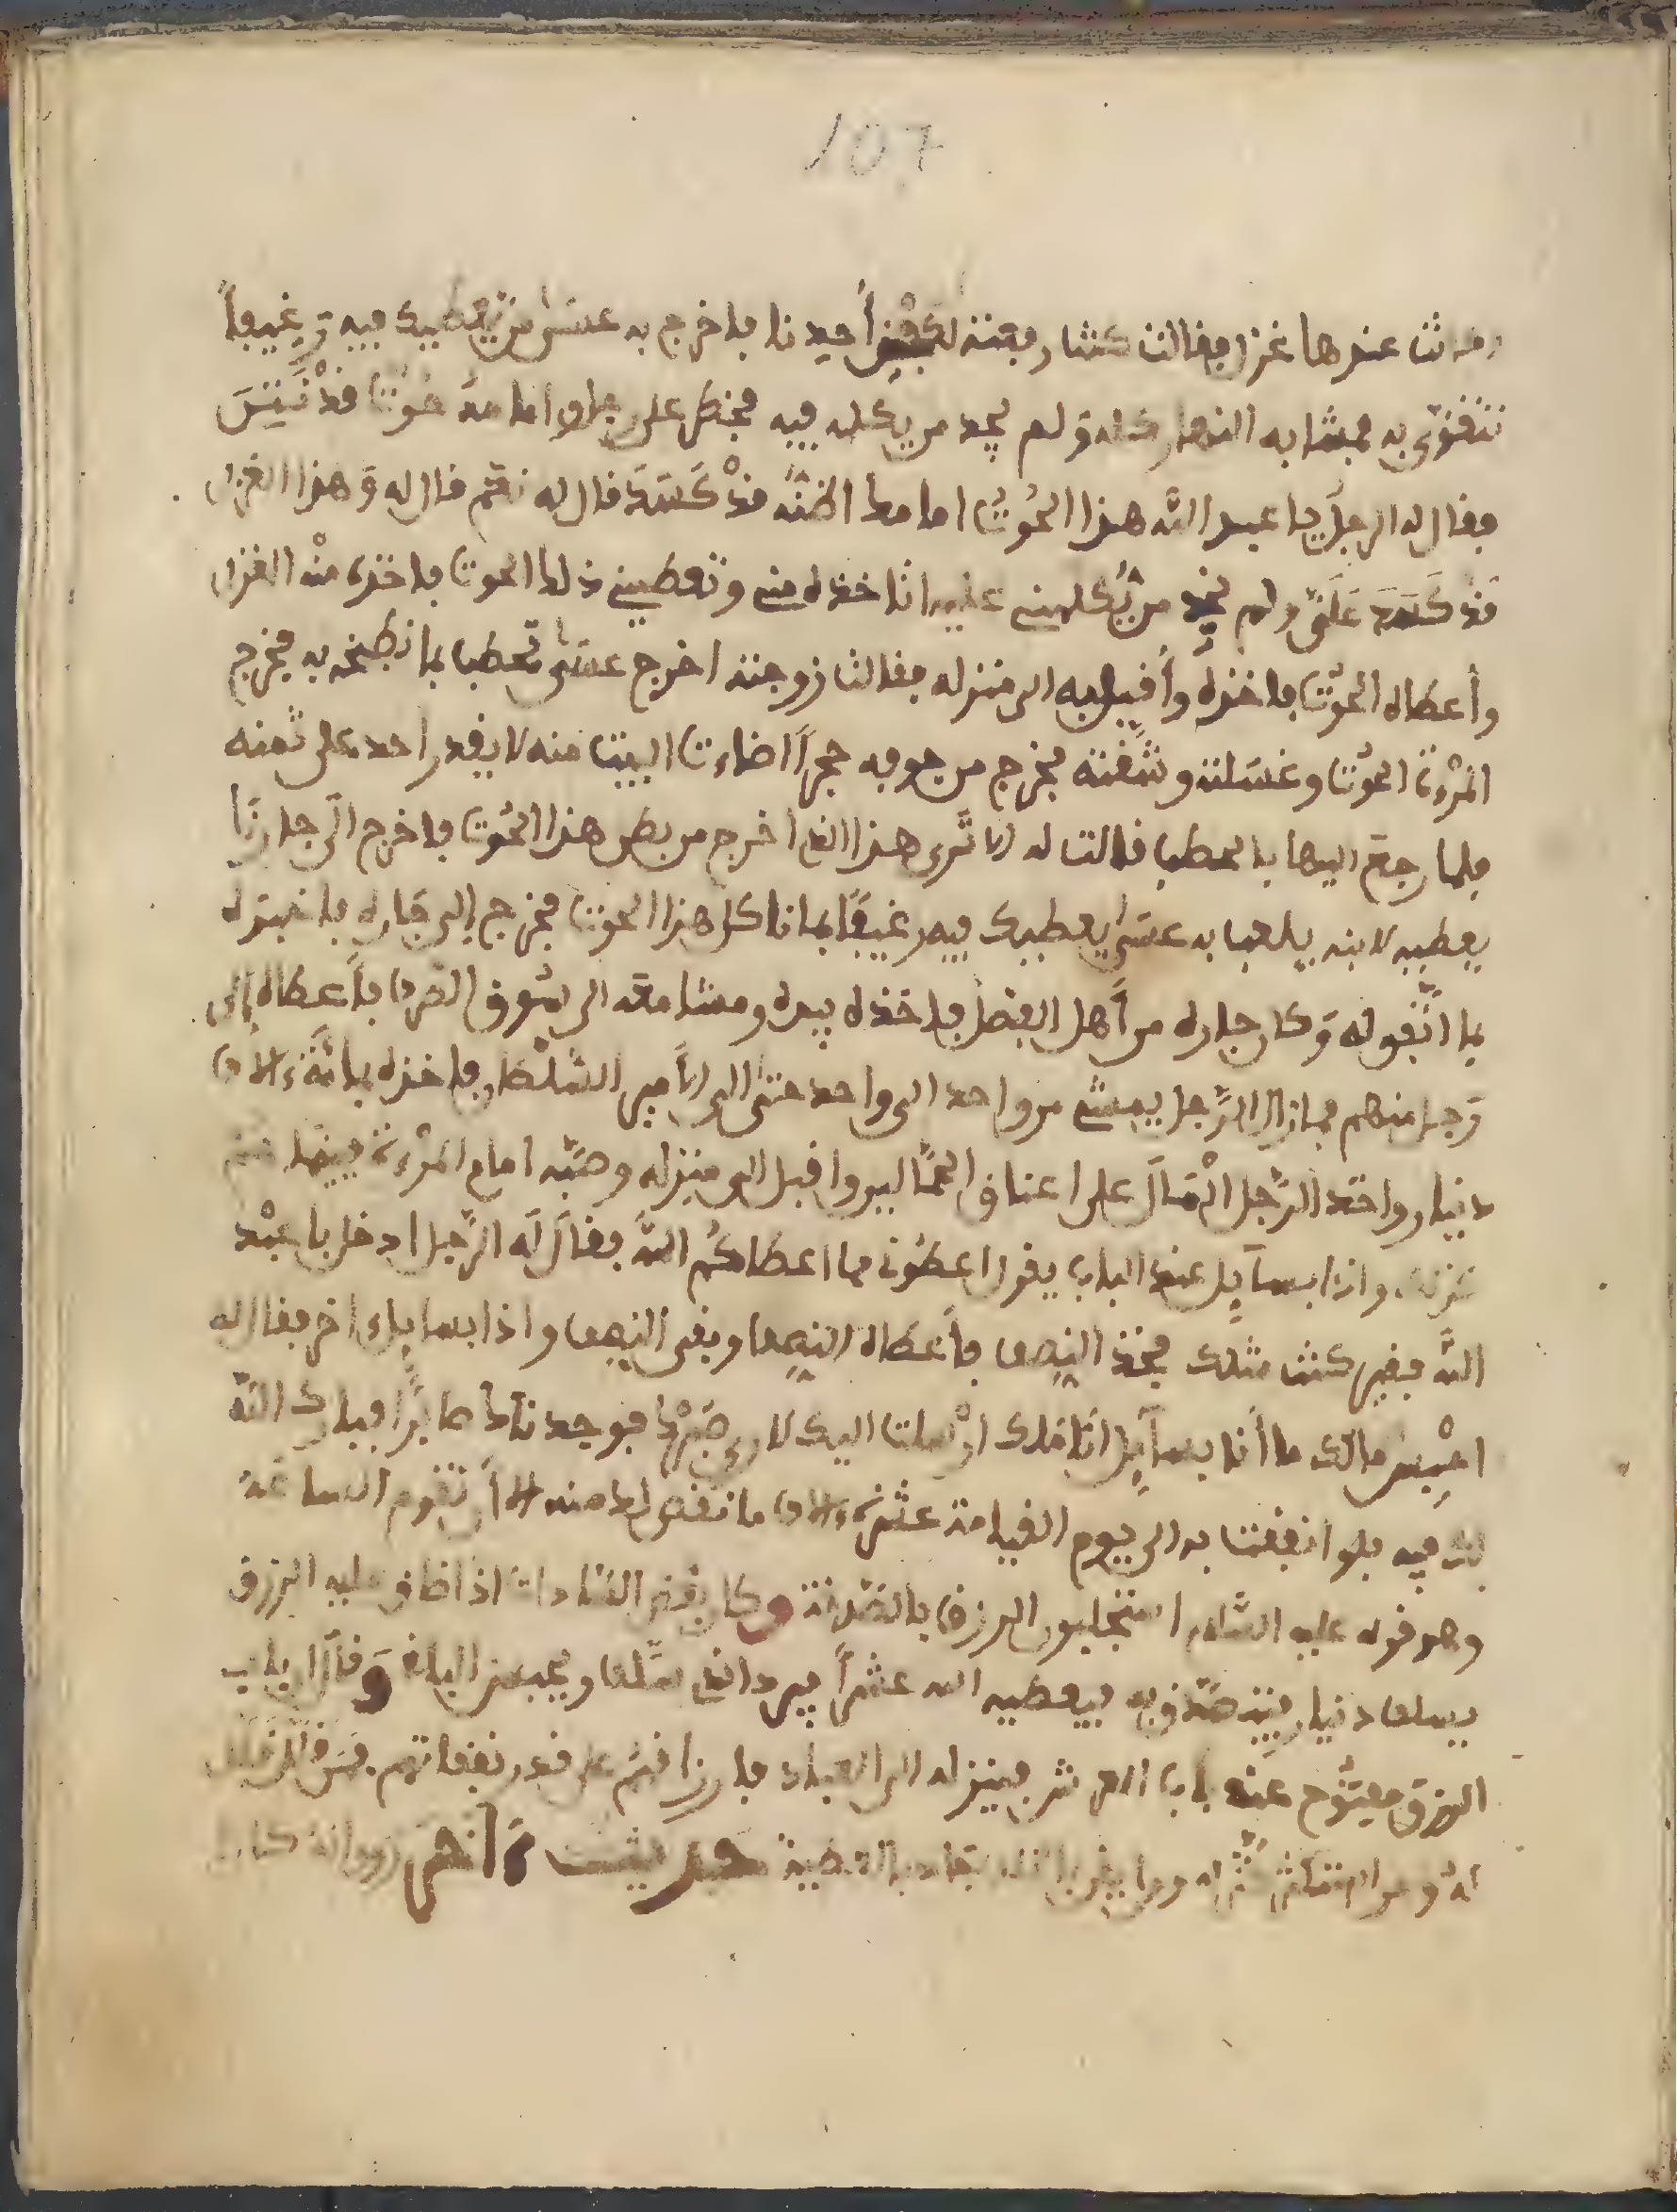 107
عندها غزل فقالت كنت رفعته لكفن احدنا فاخرج به عسى من يعطيك فيه رغيفاً
نتقوى به فمشا به النهار كله ولم يجد من يكلمه فيه فنظر على رجل و امامه حوتا قد نتن
فقال له الرجل يا عبد الله هذا الحوت امامك اظنه قد كسد قال له نعم قال له و هذا الغزل
قد كسد علي ولم نجد من يكلمني عليه اتاخذه مني و تعطيني ذلك الحوت فاخذ منه الغزل
وأعطاه الحوت فاخذه وأقبل به الى منزله فقالت زوجته اخرج عسى تحطب بما نطبخه به فخرج
المرءة الحوت و غسلته و شقته فخرج من جوفه حجراً اضاءت البيت منه لا يقدر احد على ثمنه
فلما رجع اليها بالحطب قالت له الا ترى هذا الذي اخرج من بطن هذا الحوت فاخرج الى جارنا
يعطيه لابنه يلعب به عسى يعطيك فيه رغيفاً بما ناكل هذا الحوت فخرج إلى جاره فاخبره
بما اتفق له و كان جاره من أهل الفضل فاخذه بيده و مشا معه الى سوق الصرف فأعطاه إلى
رجل منهم فمازال الرجل يمشي من واحد الى واحد حتى الى الامير السلطان فاخذه بمائة ءالاف
دينار واخذ الرجل المال على اعناق الحمالين واقبل الى منزله وصبه امام المرءة
واذا بسايل عند الباب يقول اعطوني مما اعطاكم الله فقال له الرجل ادخل يا عبد
الله فقير كنت مثلك فخذ النصف فأعطاه النصف وبقي النصف واذا بسايل اخر فقال له
احبس مالك ما أنا بسايل انا ملك ارسلت اليك لارى صبرك فوجدناك صابراً فبارك الله
لك فيه فلو انفقت به الى يوم القيامة عشرة ءالاف ما نقص لك منه الا أن تقوم الساعة
وهو قوله عليه السلام استجلبوا الرزق بالصدقة وكان بعض السادات اذا ضاق عليه الرزق
يسلف دينار فيتصدق به فيعطيه الله عشراً فيرد الذي سلف و يحبس الباقي وقال باب
الرزق مفتوح عند باب العرش فينزله الى العباد فارزاقهم على قدر نفقاتهم فمن قلل قلل
له و من استكثر كثر له وما يفي بالعطية حديث ءاخر روي انه كان